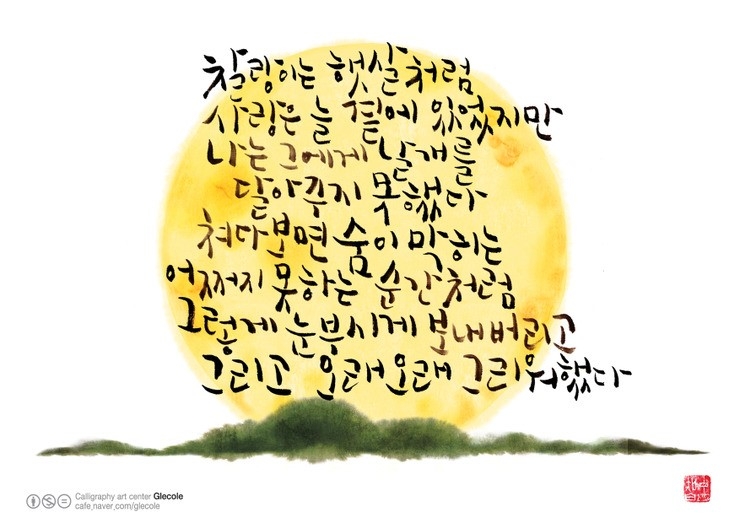 찰랑이는 햇살처럼
사랑은 늘 곁에 있었지만
나는 그에게 날개를
달아주지 못했다
쳐다보면 숨이 막히는
어쩌지 못하는 순간처럼
그렇게 눈부시게 보내버리고
그리고 오래오래 그리워했다
Calligraphy art center Glecole
cafe.naver.com/glecole